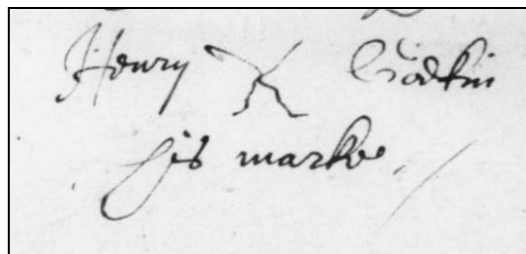 Henry Godkin
his marke